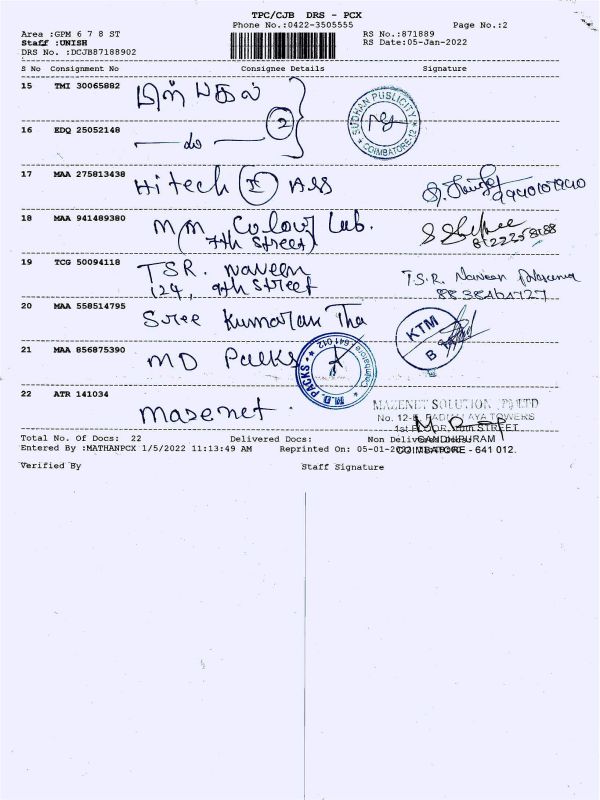 TPC/CJB DRS - PCX
Phone No.:0422-3505555
Page No.:2
Area :GPM 6 7 8 ST
RS No.:871889
Staff :UNISH
RS Date:05-Jan-2022
DRS No. :DCJB87188902
S No Consignment No Consignee Details Signature
15 TMI 30065882
SUDHAN PUSLICITY
COIMBATORE-12
16 EDQ 25052148 do 2
17 MAA 275813438 Hitech I Ass
9940101940
18 MAA 941489380 M/m Colour Lab.
(7th Street)
8122258188
19 TCG 50094118 TSR. Naveen
124, 9th Street
T.S.R. Naveen
8838464727
20 MAA 558514795 Sree Kumaran Tha
KTM
B
21 MAA 856875390 MD Packs
M.D. PACKS Coimbatore 641 012
22 ATR 141034 Masenet.
MAZENET SOLUTION (P) LTD
TOWERS
1st FLOOR, STREET
GANDHIPURAM
COIMBATORE - 641 012.
Total No. Of Docs: 22 Delivered Docs: Non Delivered Docs:
Entered By :MATHANPCX 1/5/2022 11:13:49 AM Reprinted On: 05-01-2022
Verified By Staff Signature